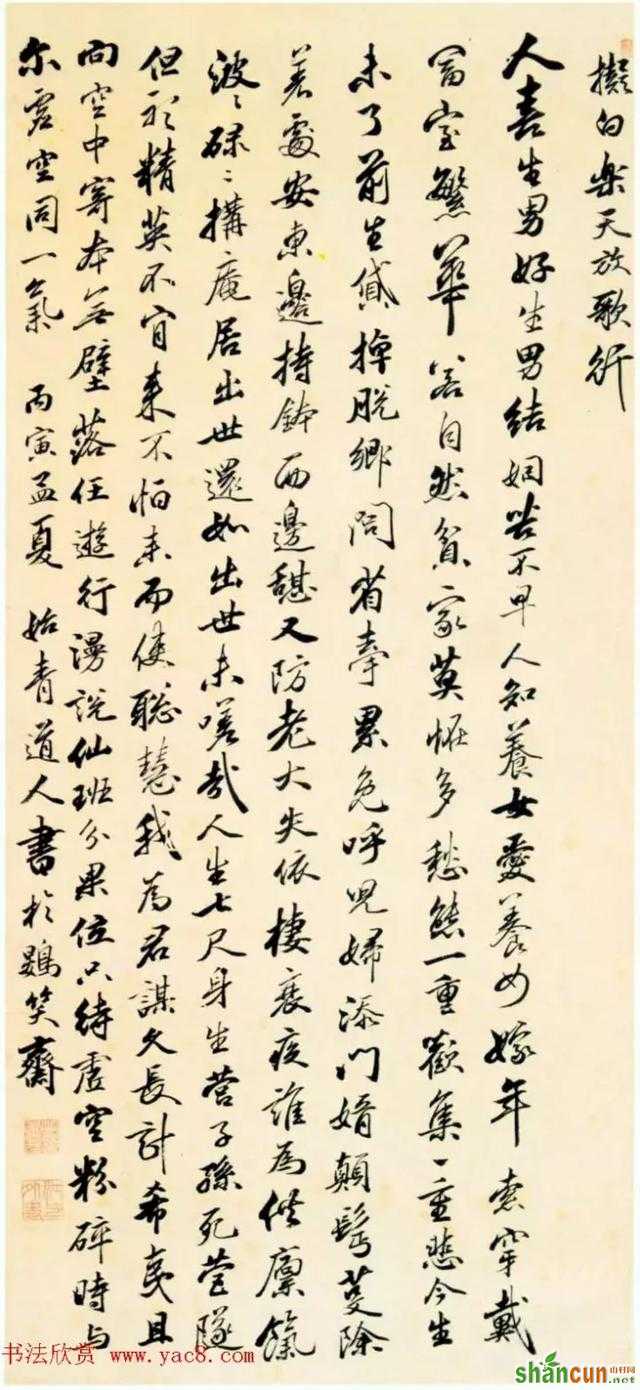 擬白樂天放歌行
人喜生男好生男結姻苦不早人知養女愛養女嫁年索穿戴
富室繁華若自然貧家莫惟多愁態一重歡集一重悲今生
未了前生貸掉脫鄉問省牽累免呼兒婦添門婿顛髩蔓除
若處安東邊持鉢西邊甚又防老大失依棲衰疲誰為供廩餼
波〻碌〻搆庵居出世還如出世未嗟哉人生七尺身生營子孫死營隧
但形精英不肯來不怕未而使聰慧我為君謀久長計希夷且
向空中寄本無壁落任遊行漫說仙班分果位只待虛空粉碎時与
尔虛空同一氣 丙寅孟夏 始青道人書於鷃笑齋
书法欣赏 www.yac8.com
shancun
山村网
.net